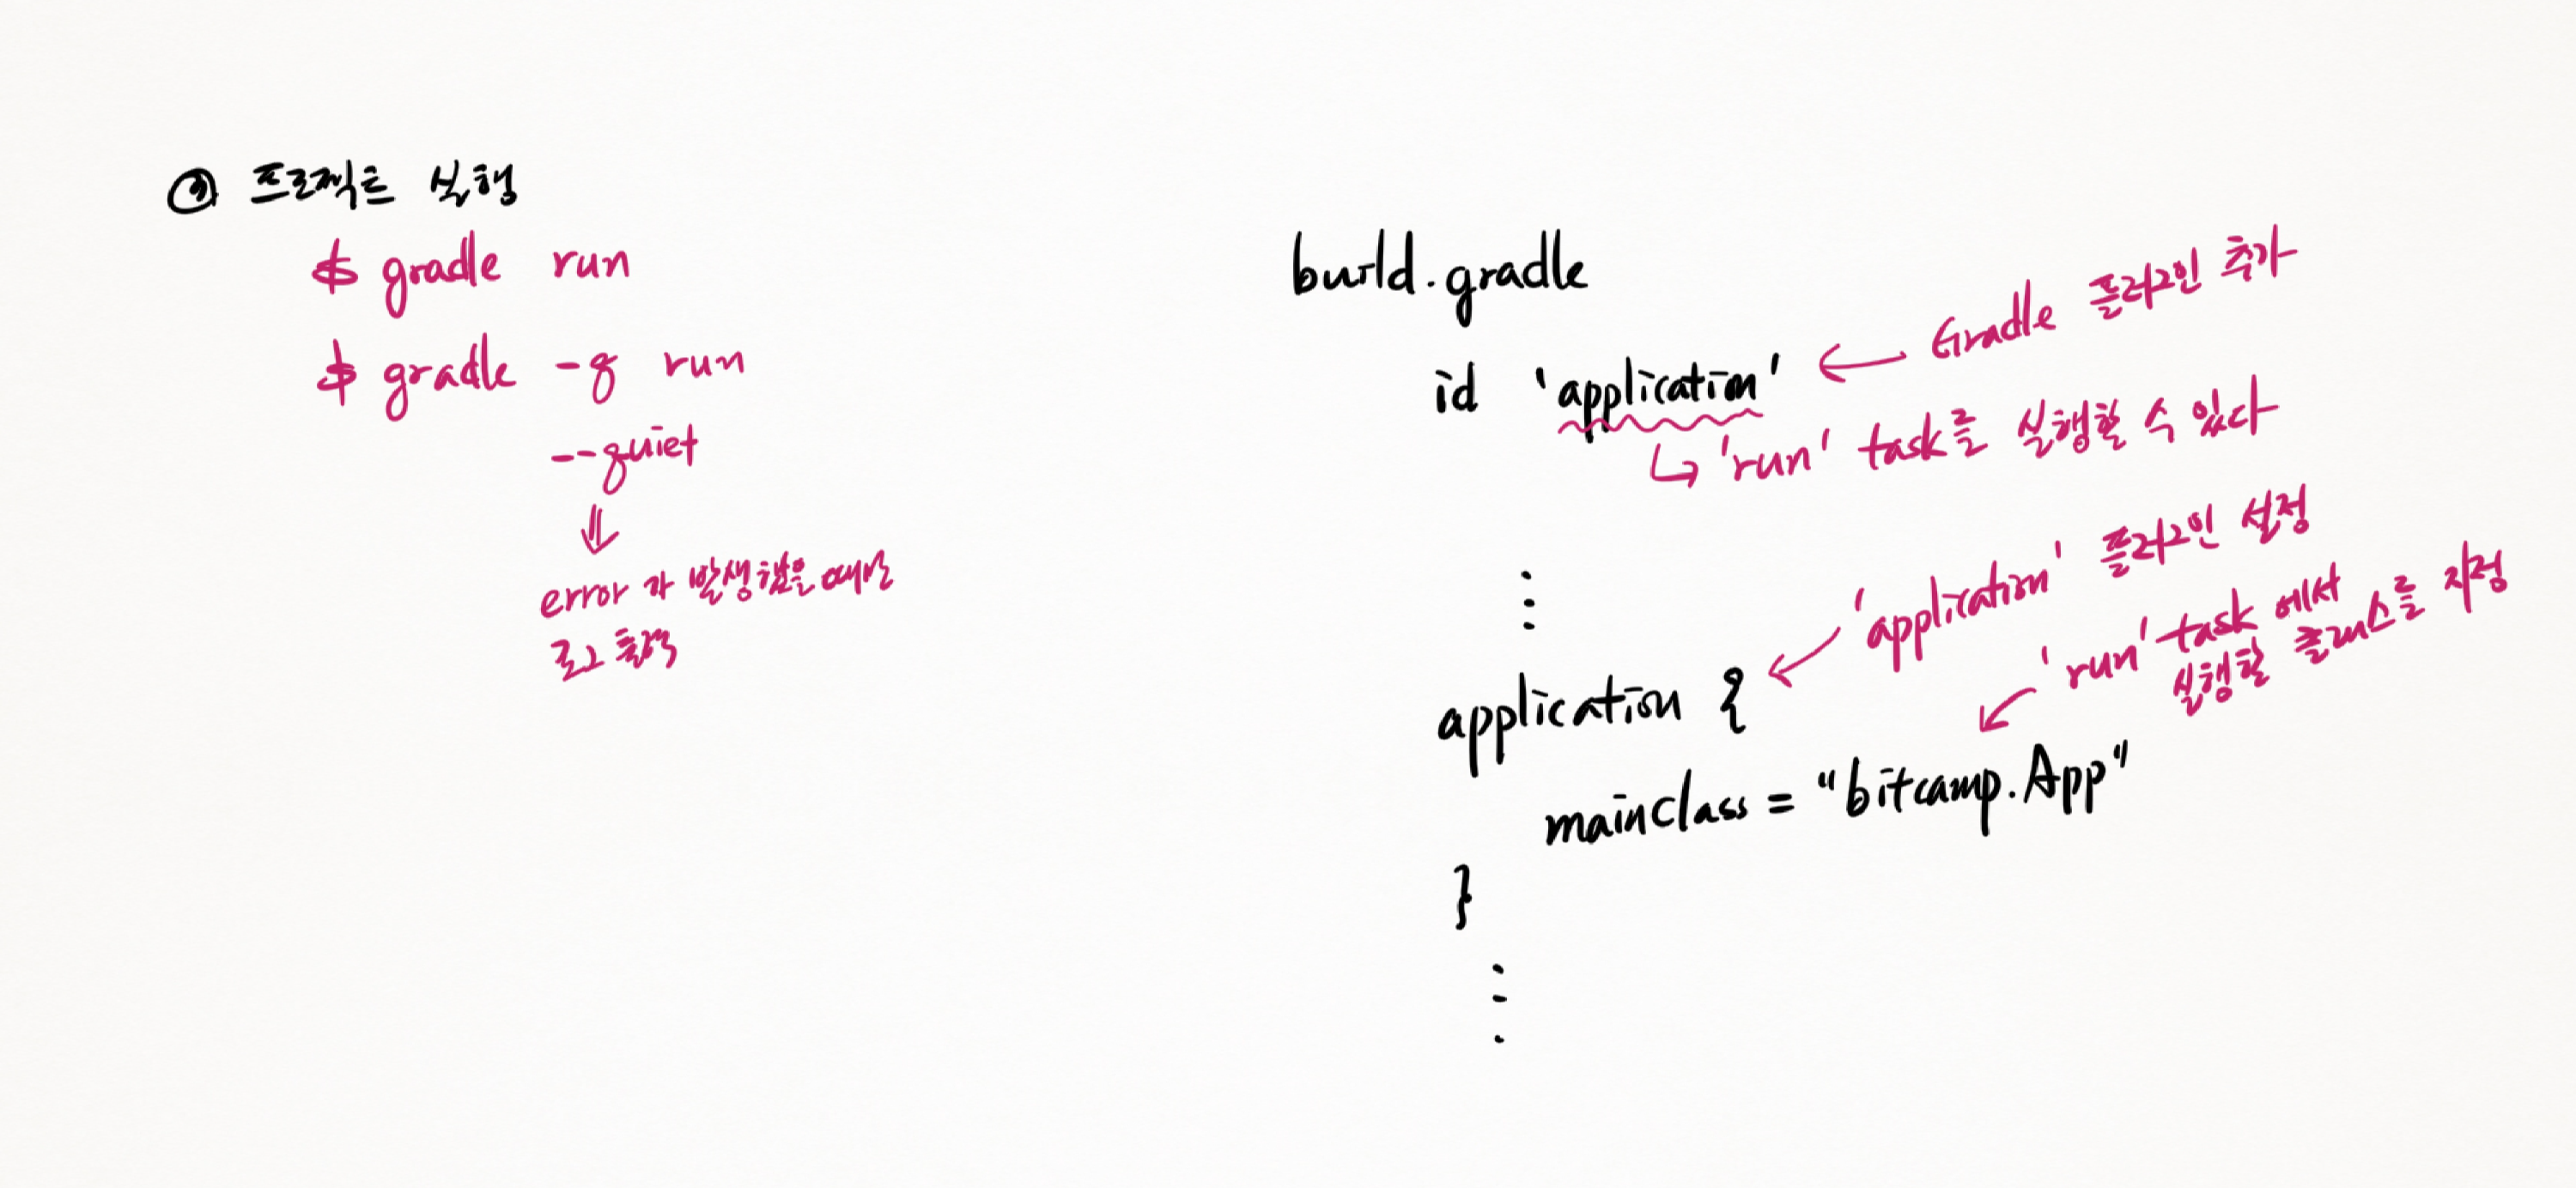 프로젝트 실행
$ gradle run
$ gradle -q run
--quiet
error가 발생했을 때만
로그 출력
build.gradle
id 'application' ← Gradle 플러그인 추가
↳ 'run' task를 실행할 수 있다
⋮
'application' 플러그인 설정
application {
'run' task 에서
실행할 클래스를 지정
mainclass = "bitcamp.App"
}
⋮